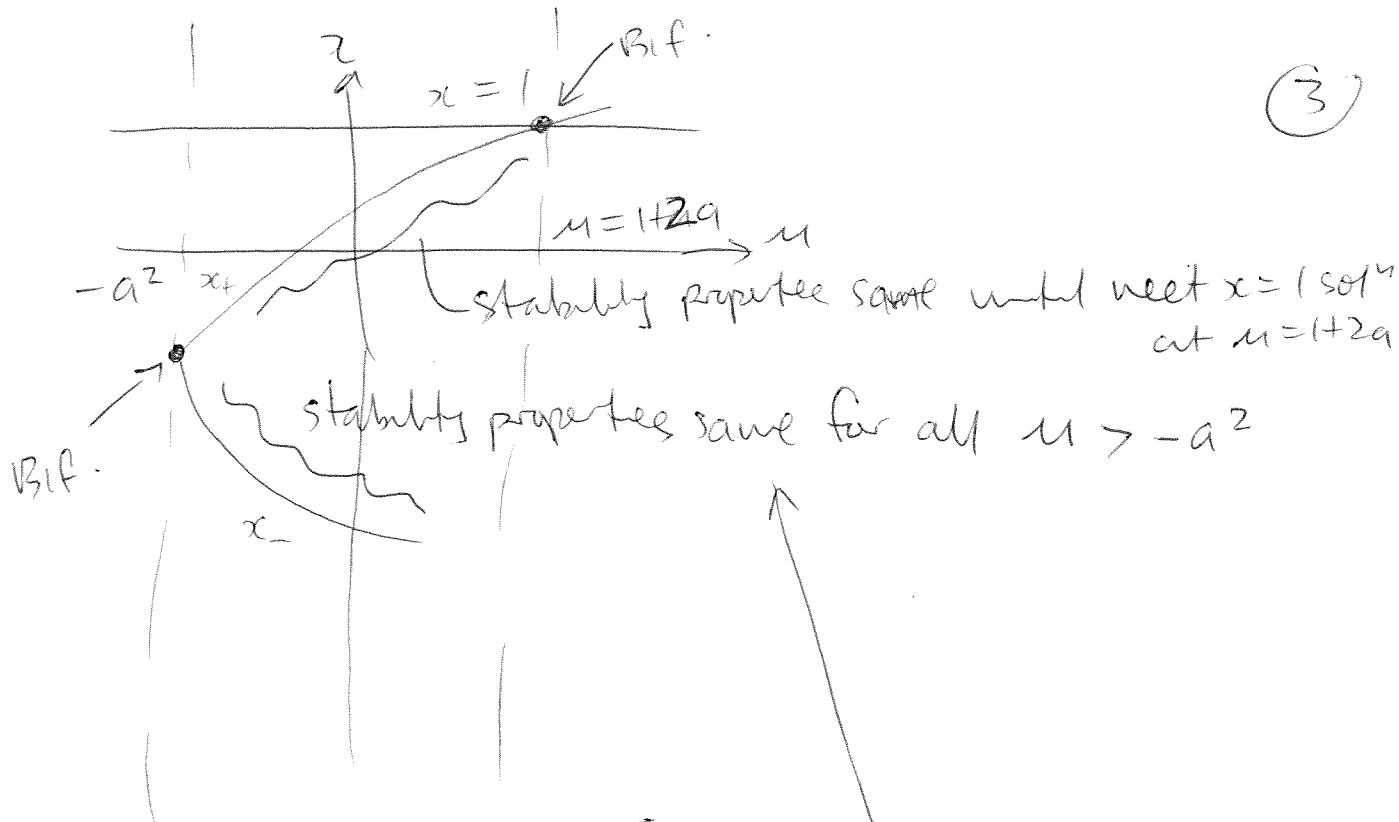 x
Bif.
x = 1
3
μ = 1+2a
μ
-a²
x₊
stability propertee same until meet x = 1 solⁿ
at μ = 1+2a
stability propertees same for all μ > -a²
Bif.
x₋